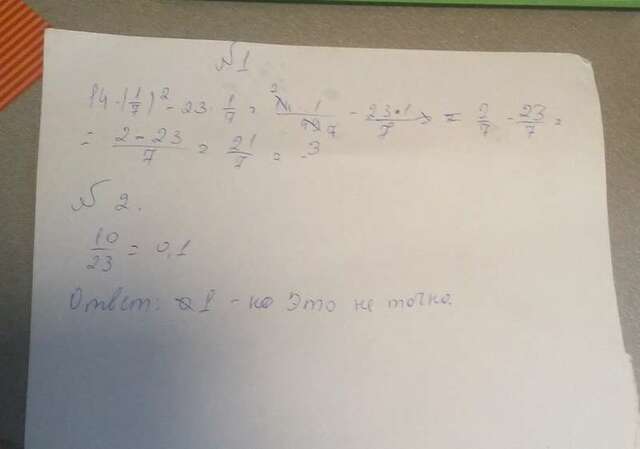 №1
14·(1/7)² - 23·1/7 = 2 14·1/49 7 - 23·1/7 = 2/7 - 23/7 =
= 2-23/7 = 21/7 = -3
№ 2.
10/23 = 0,1
Ответ: 1 - но это не точно.